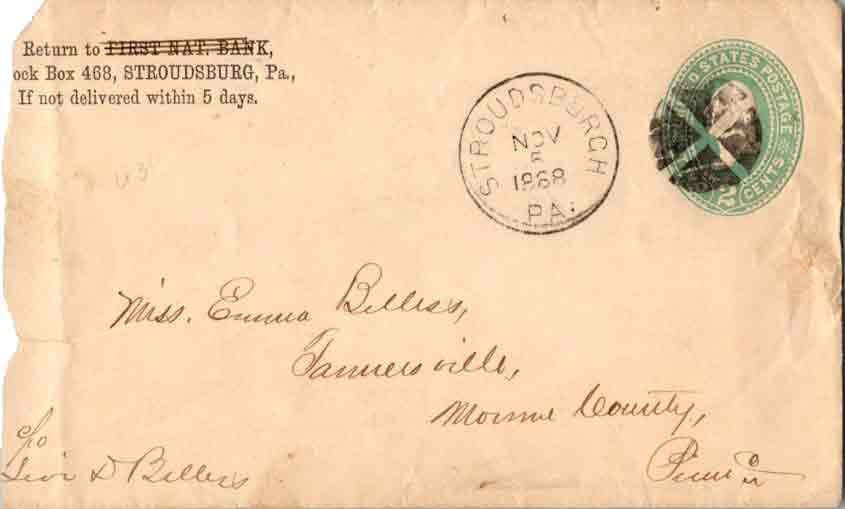 Return to FIRST NAT. BANK,
ock Box 468, STROUDSBURG, Pa.,
If not delivered within 5 days.
STROUDSBURGH
NOV
5
1868
PA.
UNITED STATES POSTAGE
2 CENTS
U 3
Miss. Emma Bellers,
Tannersville,
Monroe County,
Penn
c/o
Levi D Bellers